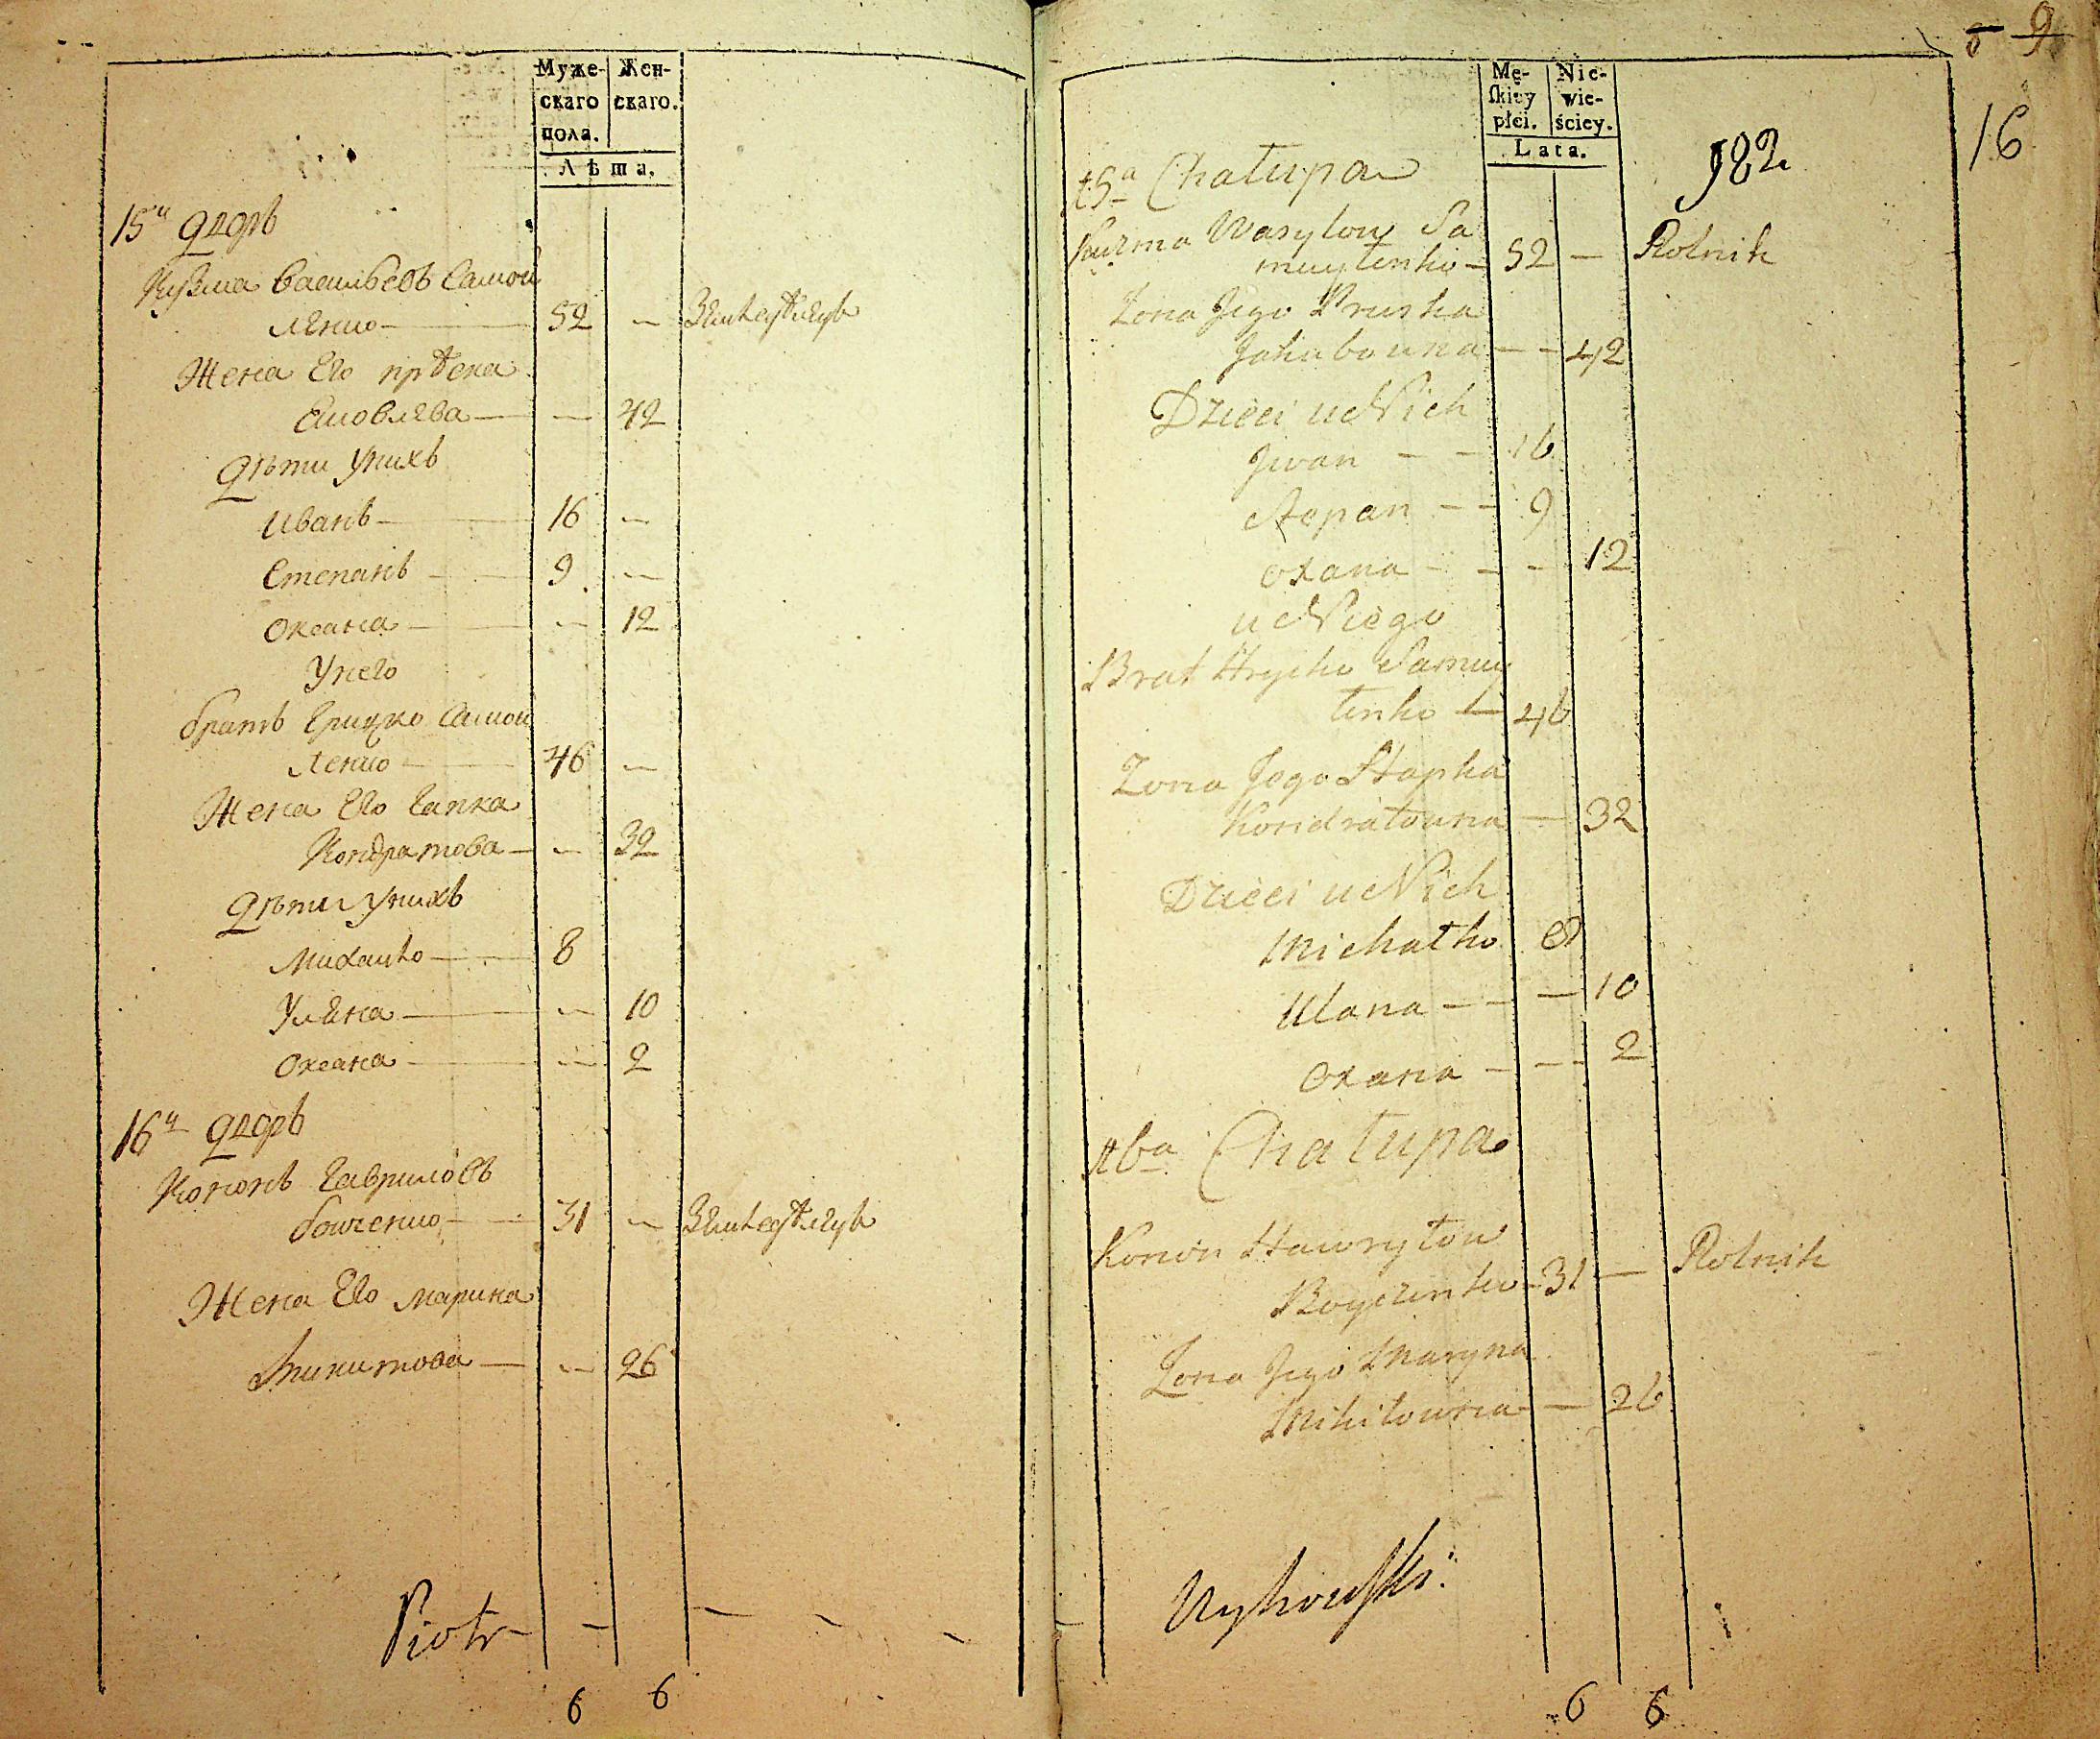 Муже-
скаго
пола.
Жен-
скаго.
Лѣта.
15й дворъ
Кузма Васильевъ Самой
ленко — 52 — Земледѣлецъ
Жена Его Прѣска
Яковлева — — 42
Дѣти Унихъ
Иванъ — 16 —
Степанъ — 9 —
Оксана — — 12
Унего
братъ Грицко Самой
ленко — 46 —
Жена Его Гапка
Кондратова — — 32
Дѣти Унихъ
Михайло — 8
Уляна — — 10
Оксана — — 2
16й дворъ
Кононъ Гавриловъ
бойченко — 31 — Земледѣлецъ
Жена Его Марина
Микитова — — 26
Piotr — — — — —
6 6
8 9
16
182
Mę-
skiey
płci.
Nie-
wie-
ściey.
Lata.
15a Chałupa
Kuzma Wasylow Sa
muylenko — 52 — Rolnik
Zona Jego Pruska
Jakubowna — — 42
Dzieci u Nich
Jwan — — 16
Stepan — — 9
Oxana — — — 12
u Niego
Brat Hrycko Samuy
lenko — 46
Zona Jego Hapka
Kondratowna — 32
Dzieci u Nich
Michałko 8
Ulana — — — 10
Oxana — — — 2
16a Chałupa
Konon Hawryłow
Boyczenko — 31 — Rolnik
Zona Jego Maryna
Mikitowna — — 26
Wyhowski.
6 6